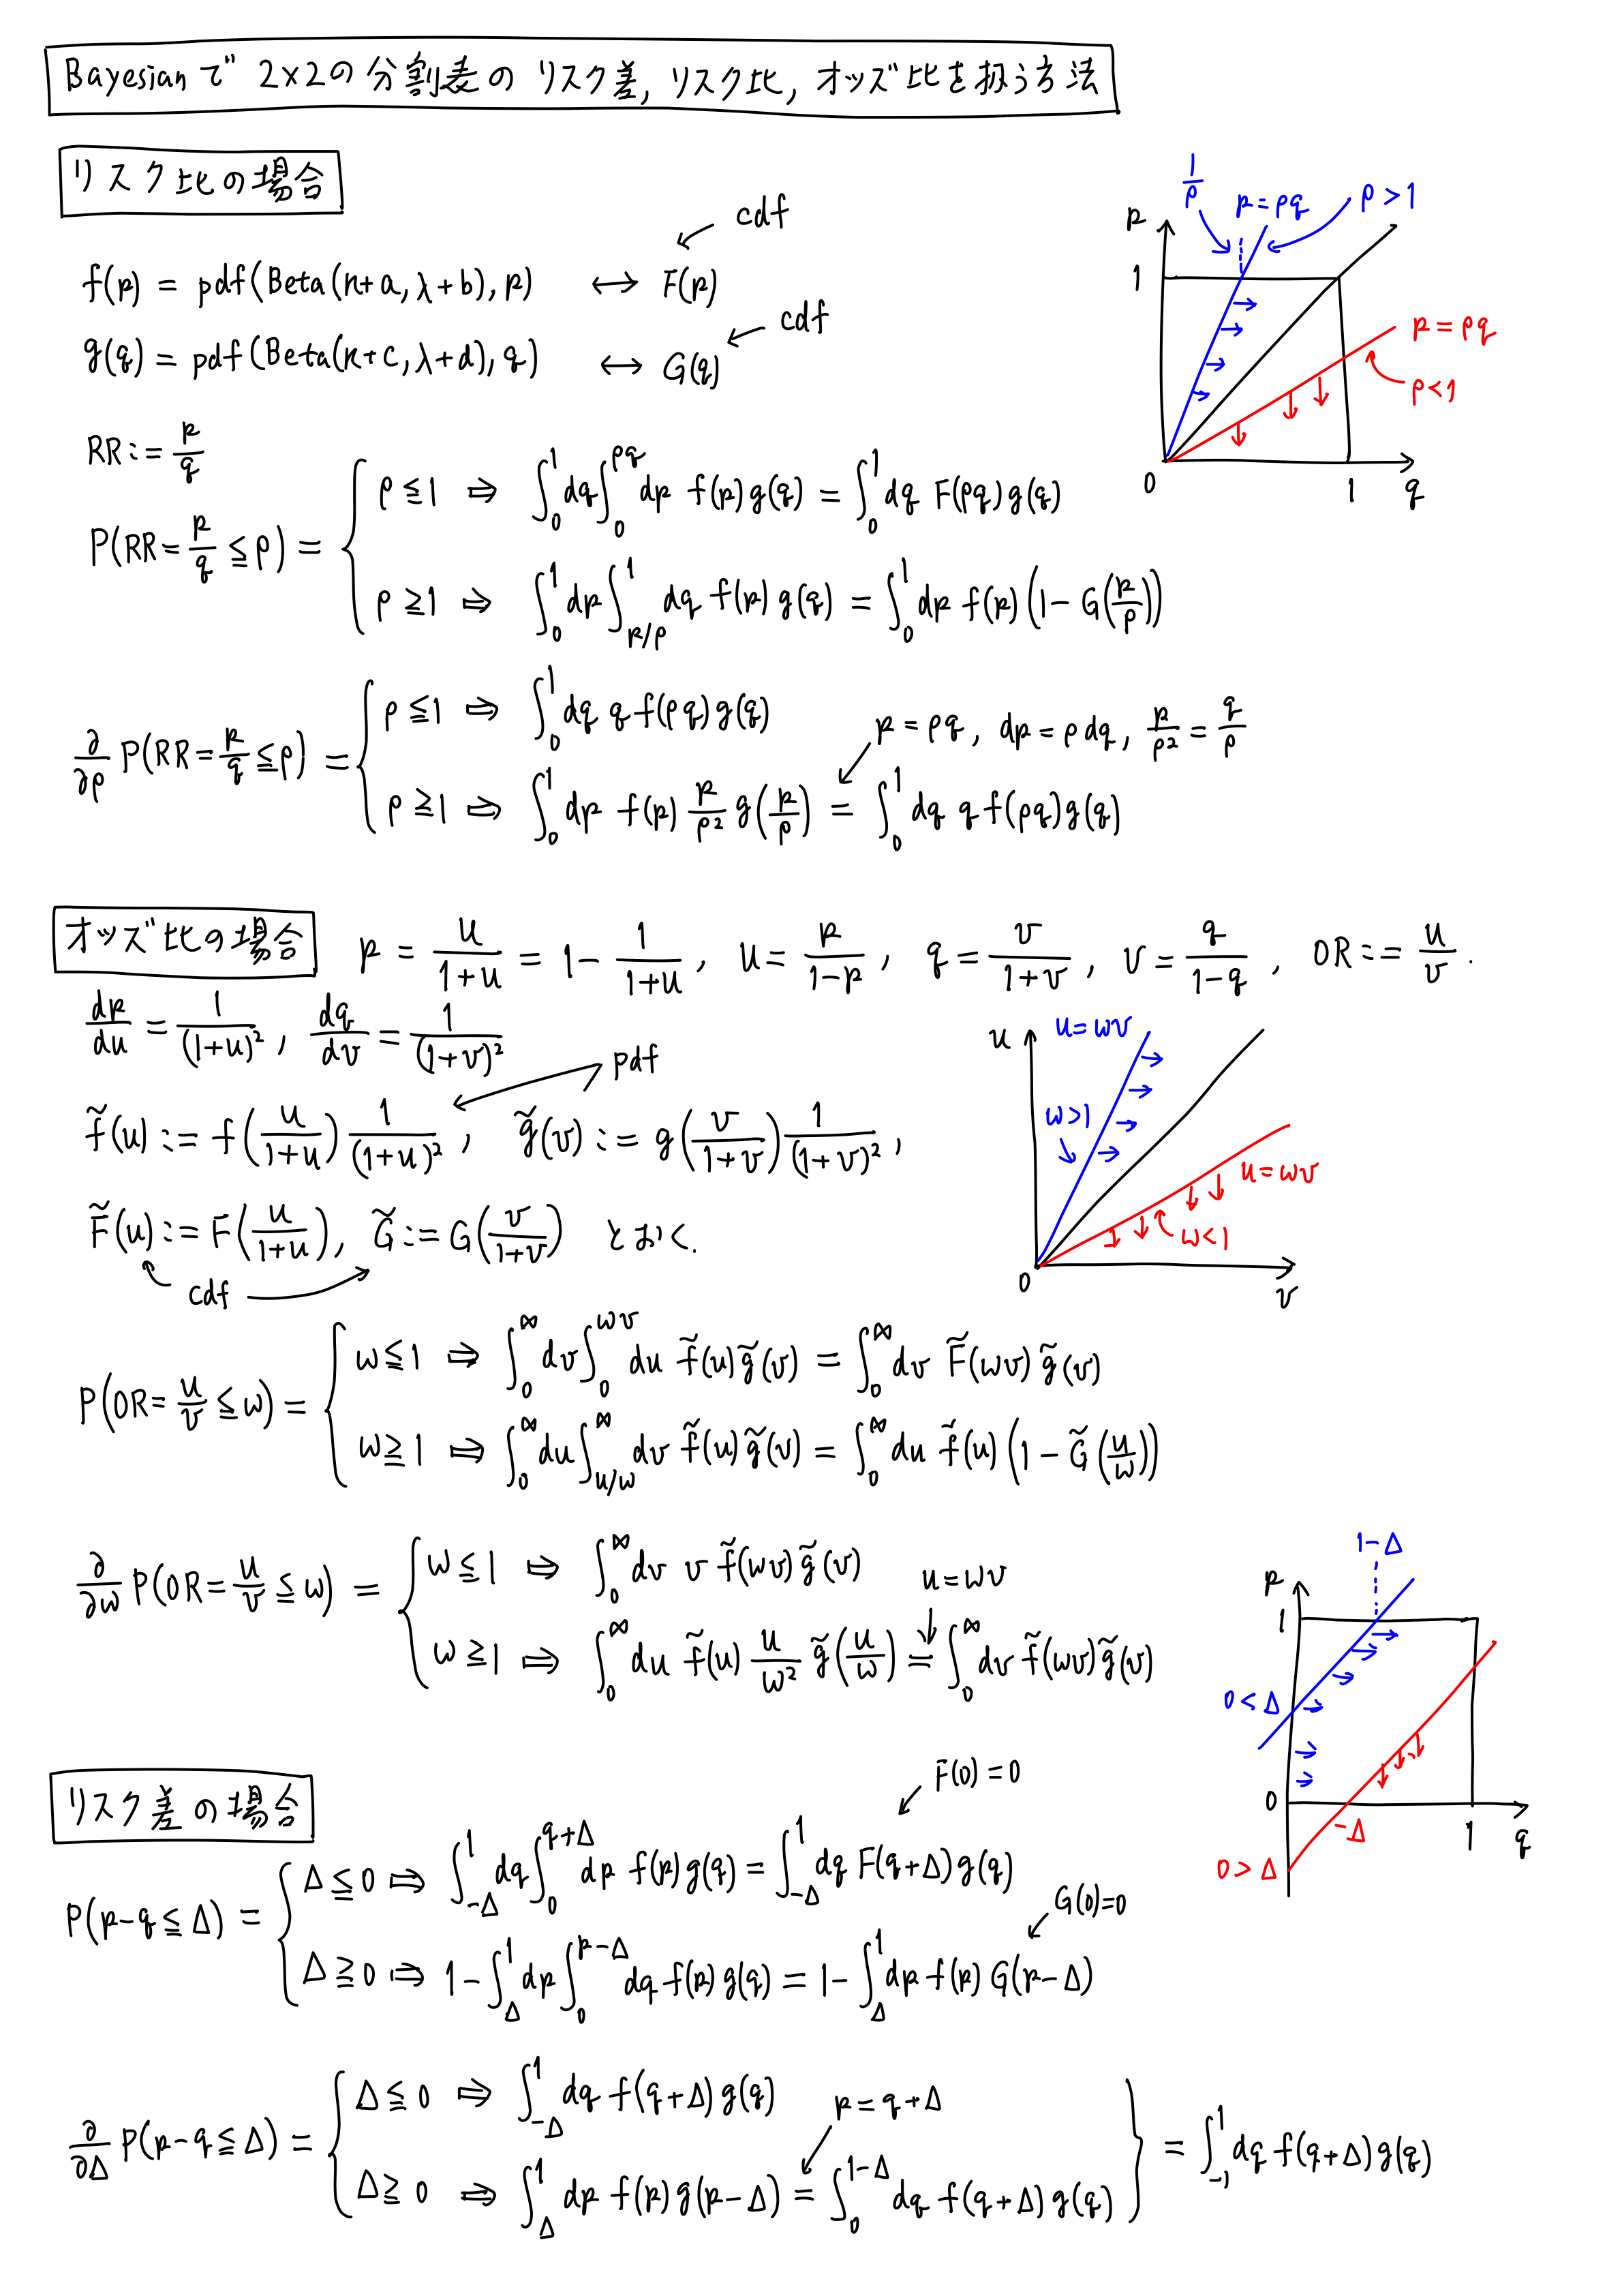 Bayesianで 2×2の分割表の リスク差, リスク比, オッズ比を扱う方法
リスク比の場合
f(p) = pdf(Beta(κ+a, λ+b), p) ⟷ F(p) ← cdf
g(q) = pdf(Beta(κ+c, λ+d), q) ⟷ G(q) ← cdf
1/ρ p=ρq ρ>1
p 1 0 1 q
p=ρq
ρ<1
RR := p/q
P(RR = p/q ≦ ρ) = {
ρ≦1 ⇒ ∫_0^1 dq ∫_0^{ρq} dp f(p)g(q) = ∫_0^1 dq F(ρq)g(q)
ρ≧1 ⇒ ∫_0^1 dp ∫_{p/ρ}^1 dq f(p)g(q) = ∫_0^1 dp f(p)(1-G(p/ρ))
∂/∂ρ P(RR = p/q ≦ ρ) = {
ρ≦1 ⇒ ∫_0^1 dq q f(ρq)g(q)
p=ρq, dp=ρdq, p/ρ² = q/ρ
ρ≧1 ⇒ ∫_0^1 dp f(p) p/ρ² g(p/ρ) = ∫_0^1 dq q f(ρq)g(q)
オッズ比の場合 p = u/(1+u) = 1 - 1/(1+u), u = p/(1-p), q = v/(1+v), v = q/(1-q), OR := u/v.
dp/du = 1/(1+u)², dq/dv = 1/(1+v)²
pdf
f̃(u) := f(u/(1+u)) 1/(1+u)², g̃(v) := g(v/(1+v)) 1/(1+v)²,
F̃(u) := F(u/(1+u)), G̃ := G(v/(1+v)) とおく.
cdf
u u=ωv
ω>1
u=ωv
ω<1
0 v
P(OR = u/v ≦ ω) = {
ω≦1 ⇒ ∫_0^∞ dv ∫_0^{ωv} du f̃(u)g̃(v) = ∫_0^∞ dv F̃(ωv)g̃(v)
ω≧1 ⇒ ∫_0^∞ du ∫_{u/ω}^∞ dv f̃(u)g̃(v) = ∫_0^∞ du f̃(u)(1-G̃(u/ω))
∂/∂ω P(OR = u/v ≦ ω) = {
ω≦1 ⇒ ∫_0^∞ dv v f̃(ωv)g̃(v)
u=ωv
ω≧1 ⇒ ∫_0^∞ du f̃(u) u/ω² g̃(u/ω) = ∫_0^∞ dv f̃(ωv)g̃(v)
1-Δ
p 1
0<Δ
0 -Δ 1 q
0>Δ
リスク差の場合
F(0)=0
P(p-q ≦ Δ) = {
Δ≦0 ⇒ ∫_{-Δ}^1 dq ∫_0^{q+Δ} dp f(p)g(q) = ∫_{-Δ}^1 dq F(q+Δ)g(q)
G(0)=0
Δ≧0 ⇒ 1-∫_Δ^1 dp ∫_0^{p-Δ} dq f(p)g(q) = 1-∫_Δ^1 dp f(p)G(p-Δ)
∂/∂Δ P(p-q ≦ Δ) = {
Δ≦0 ⇒ ∫_{-Δ}^1 dq f(q+Δ)g(q)
p=q+Δ
Δ≧0 ⇒ ∫_Δ^1 dp f(p)g(p-Δ) = ∫_0^{1-Δ} dq f(q+Δ)g(q)
} = ∫_{-1}^1 dq f(q+Δ)g(q)